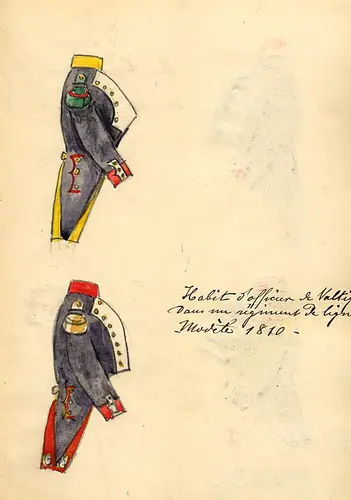 Habit d'officier de Voltig
dans un régiment de lign
Modèle 1810 -